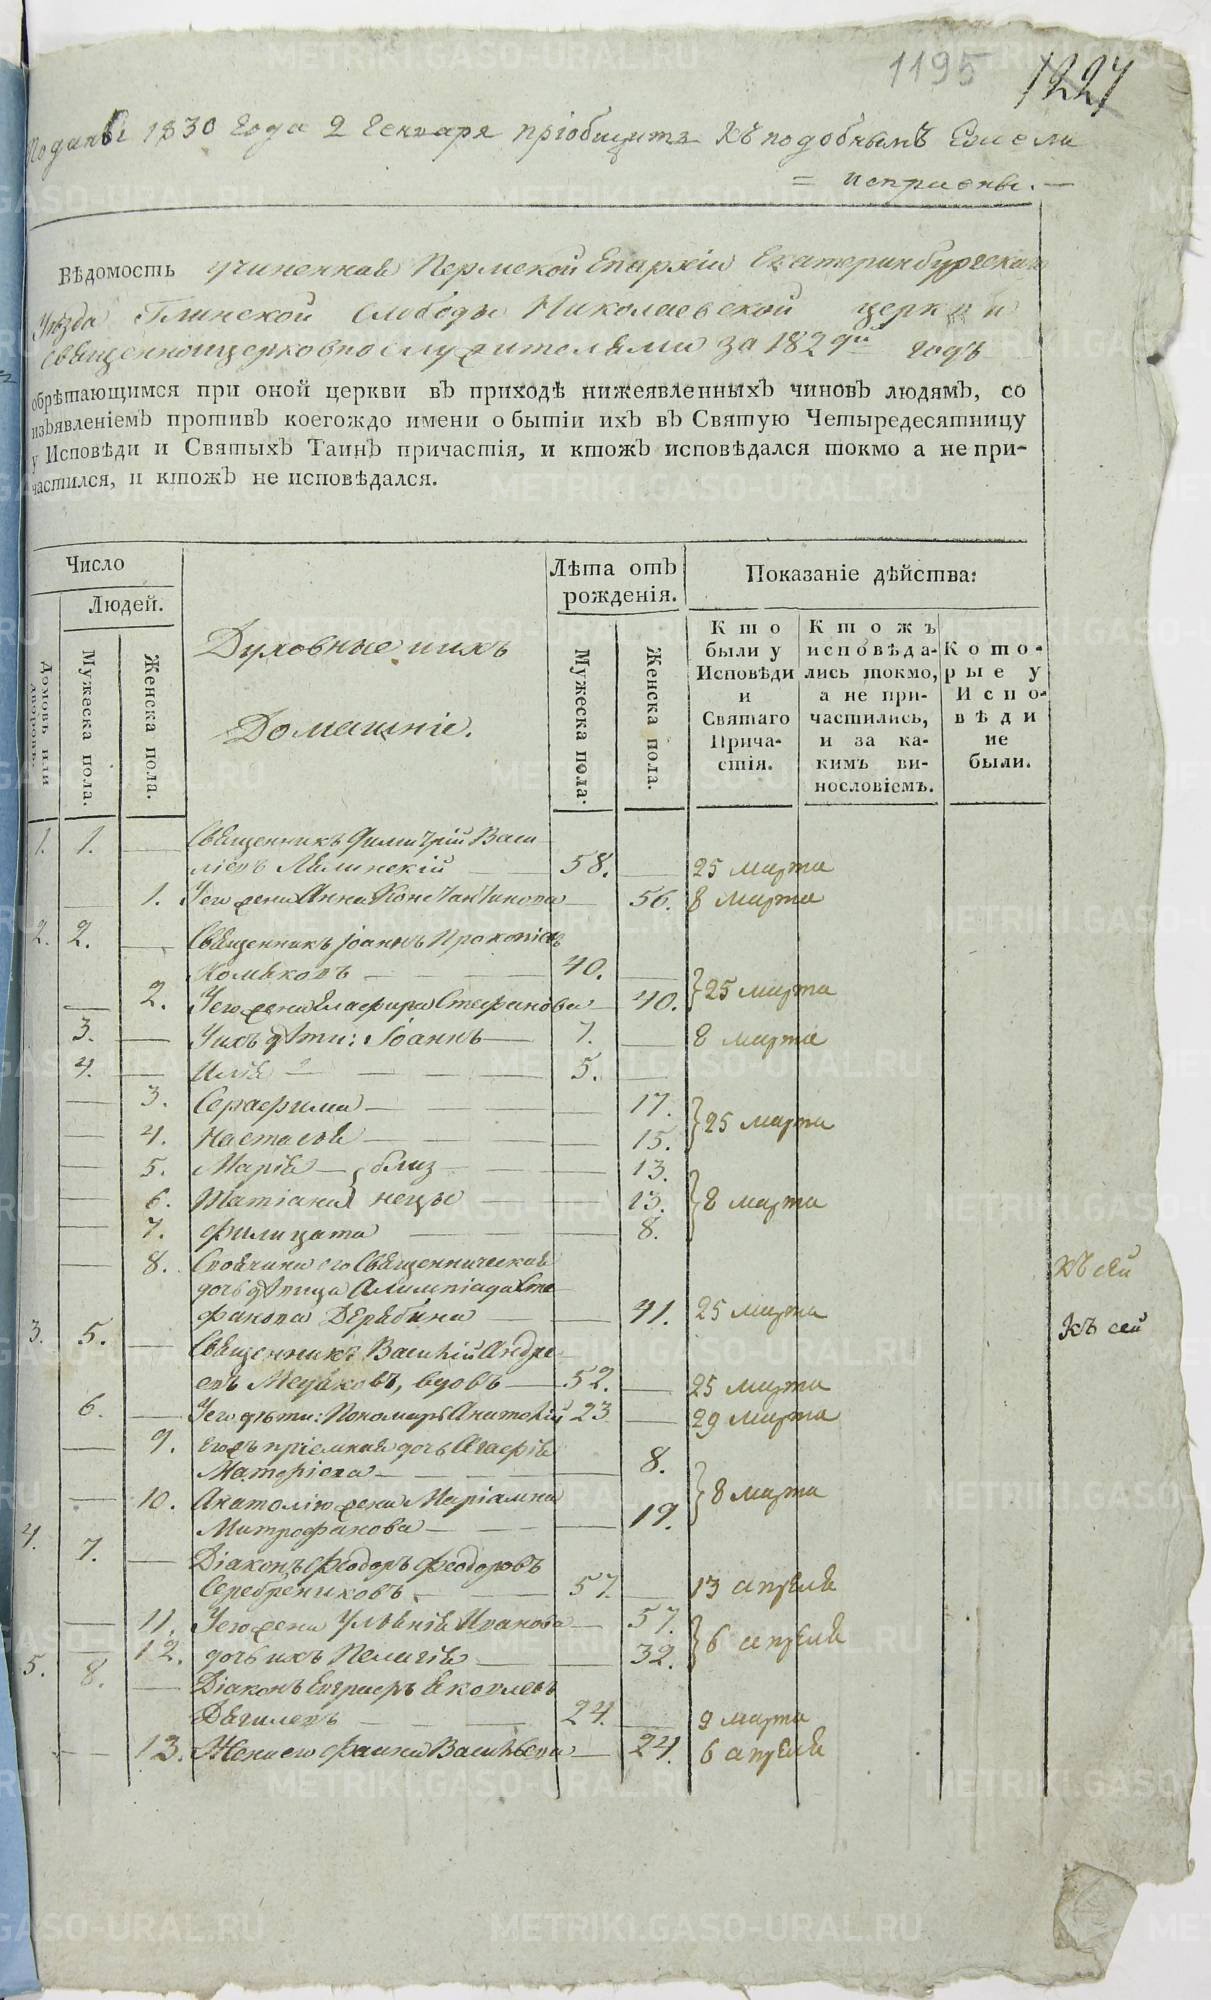 1195 1227
Поданы 1830 Года 2 Генваря пріобщить къ подобнымъ Если
= исправны. —
Вѣдомость учиненная Пермской Епархіи Екатеринбургскаго
Уѣзда Глинской слободы Николаевской церкви
священноцерковнослужителями за 1829й годъ
обрѣтающимся при оной церкви въ приходѣ нижеявленныхъ чиновъ людямъ, со
изъявленіемъ противъ коегождо имени о бытіи ихъ въ Святую Четыредесятницу
у Исповѣди и Святыхъ Таинъ причастія, и ктожъ исповѣдался токмо а не при-
частился, и ктожъ не исповѣдался.
Число
Людей.
Домовъ или дворовъ.
Мужеска пола.
Женска пола.
Духовные и ихъ
Домашніе.
Лѣта отъ
рожденія.
Мужеска пола.
Женска пола.
Показаніе дѣйства:
Кто
были у
Исповѣди
и
Святаго
Прича-
стія.
Ктожъ
исповѣда-
лись токмо,
а не при-
частились,
и за ка-
кимъ ви-
нословіемъ.
Кото-
рые у
Испо-
вѣди
не
были.
1. 1. — Священникъ Димитрій Васи
ліевъ 58. — 25 марта
— 1. Его жена Анна Константинова — 56. 8 марта
2. 2. — Священникъ Іоаннъ Прокопіевъ
40. —
— 2. Его жена Глафира Стефанова — 40. } 25 марта
3. — Ихъ дѣти: Іоаннъ — 7. — 8 марта
4. — Илія — 5. —
— 3. Серафима — 17.
— 4. Настасія — 15. } 25 марта
— 5. Марія — } близ — 13.
— 6. Татіана } нецы — 13. } 8 марта
— 7. Филицата — 8.
— 8. Своячина его Священническая
дочь дѣвица Алимпіада Сте
фанова Дерябина — 41. 25 марта
къ сей
къ сей
3. 5. — Священникъ Василій Андре
евъ вдовъ — 52. — 25 марта
6. — Его дѣти: Пономарь Анатолій 23 — 29 марта
— 9. пріемная дочь Агафія
8.
— 10. Анатолію жена Маріамна
Митрофанова — 19. } 8 марта
4. 7. — Діаконъ Феодоръ Феодоровъ
Серебрениковъ — 57. — 13 апреля
— 11. Его жена Ульянія Иванова — 57.
— 12. дочь ихъ Пелагія — 32. } 6 апреля
5. 8. — Діаконъ Евграфъ Яковлевъ
Дягилевъ — 24. — 9 марта
— 13. Жена его Фаина Васильева — 24. 6 апреля